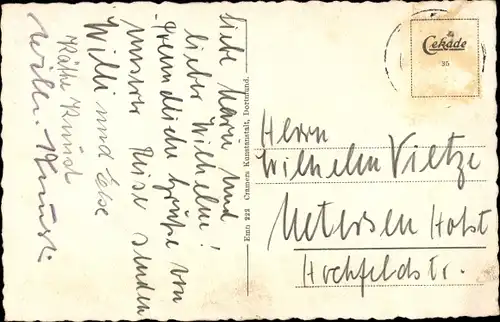 Liebe Marie und
lieber Wilhelm!
Freundliche Grüße von
unserer Reise senden
Willi und Else
Käthe Kunst
Willi Kunst.
Emb 222 Cramers Kunstanstalt, Dortmund.
Cekade
35
Herrn
Wilhelm Vietze
Uetersen Holst
Hochfeldstr.